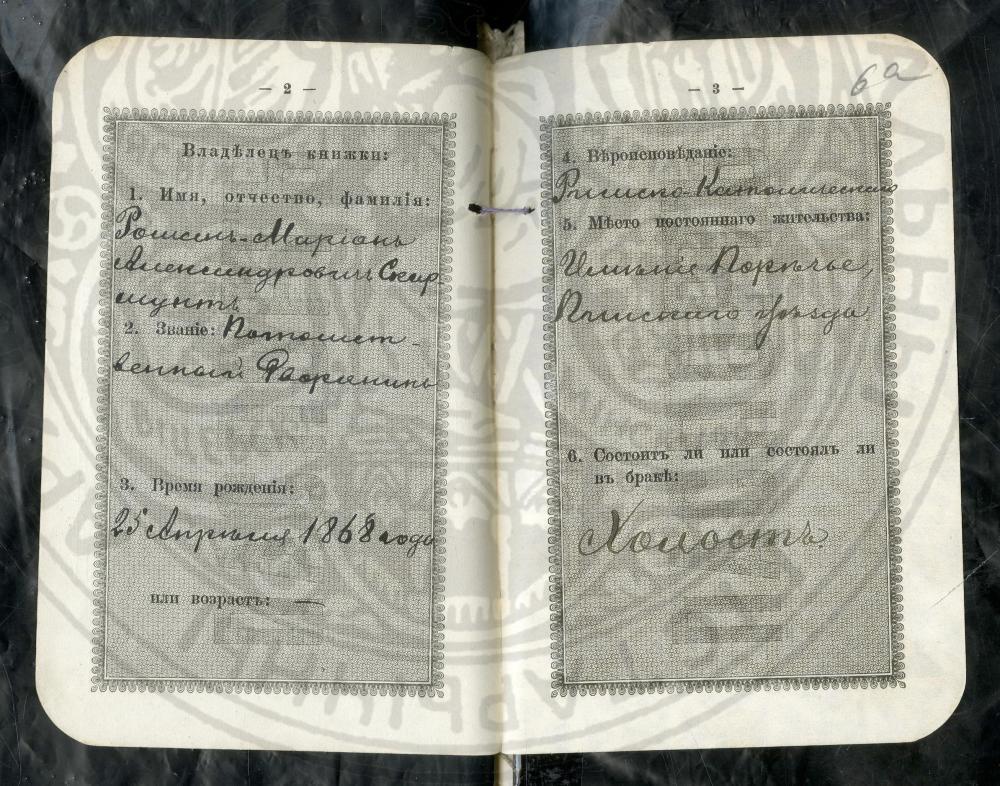 — 2 —
Владѣлецъ книжки:
1. Имя, отчество, фамилія:
Романъ-Маріанъ
Александровичъ Скир-
мунтъ
2. Званіе: Потомст-
венный Дворянинъ
3. Время рожденія:
25 Апрѣля 1868 года
или возрастъ: —
— 3 —
6а
4. Вѣроисповѣданіе:
Римско-Католическаго
5. Мѣсто постояннаго жительства:
Имѣніе Порѣчье,
Пинскаго уѣзда
6. Состоитъ ли или состоялъ ли
въ бракѣ:
Холостъ.